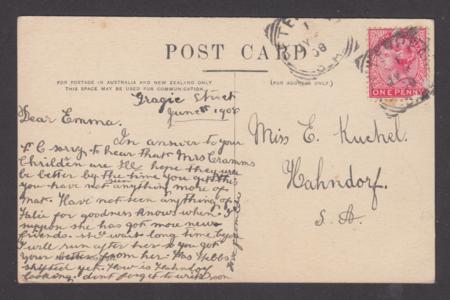 POST CARD
FOR POSTAGE IN AUSTRALIA AND NEW ZEALAND ONLY
THIS SPACE MAY BE USED FOR COMMUNICATION.
(FOR ADDRESS ONLY.)
ONE PENNY
08
Street
June 1908
Dear Emma.
In answer to your
P C sorry to hear that Mrs
Children are ill hope they will
be better by the time you get this
you have not anything more of
that. Have not seen anything of
for goodness knows when. I
suppose she has got more new
friends.
I will run after her so you got
your from her. Mrs Webbs
shifted yet. How is Hahndorf
looking. dont forget to write soon
Miss E. Kuchel.
Hahndorf.
S. A.